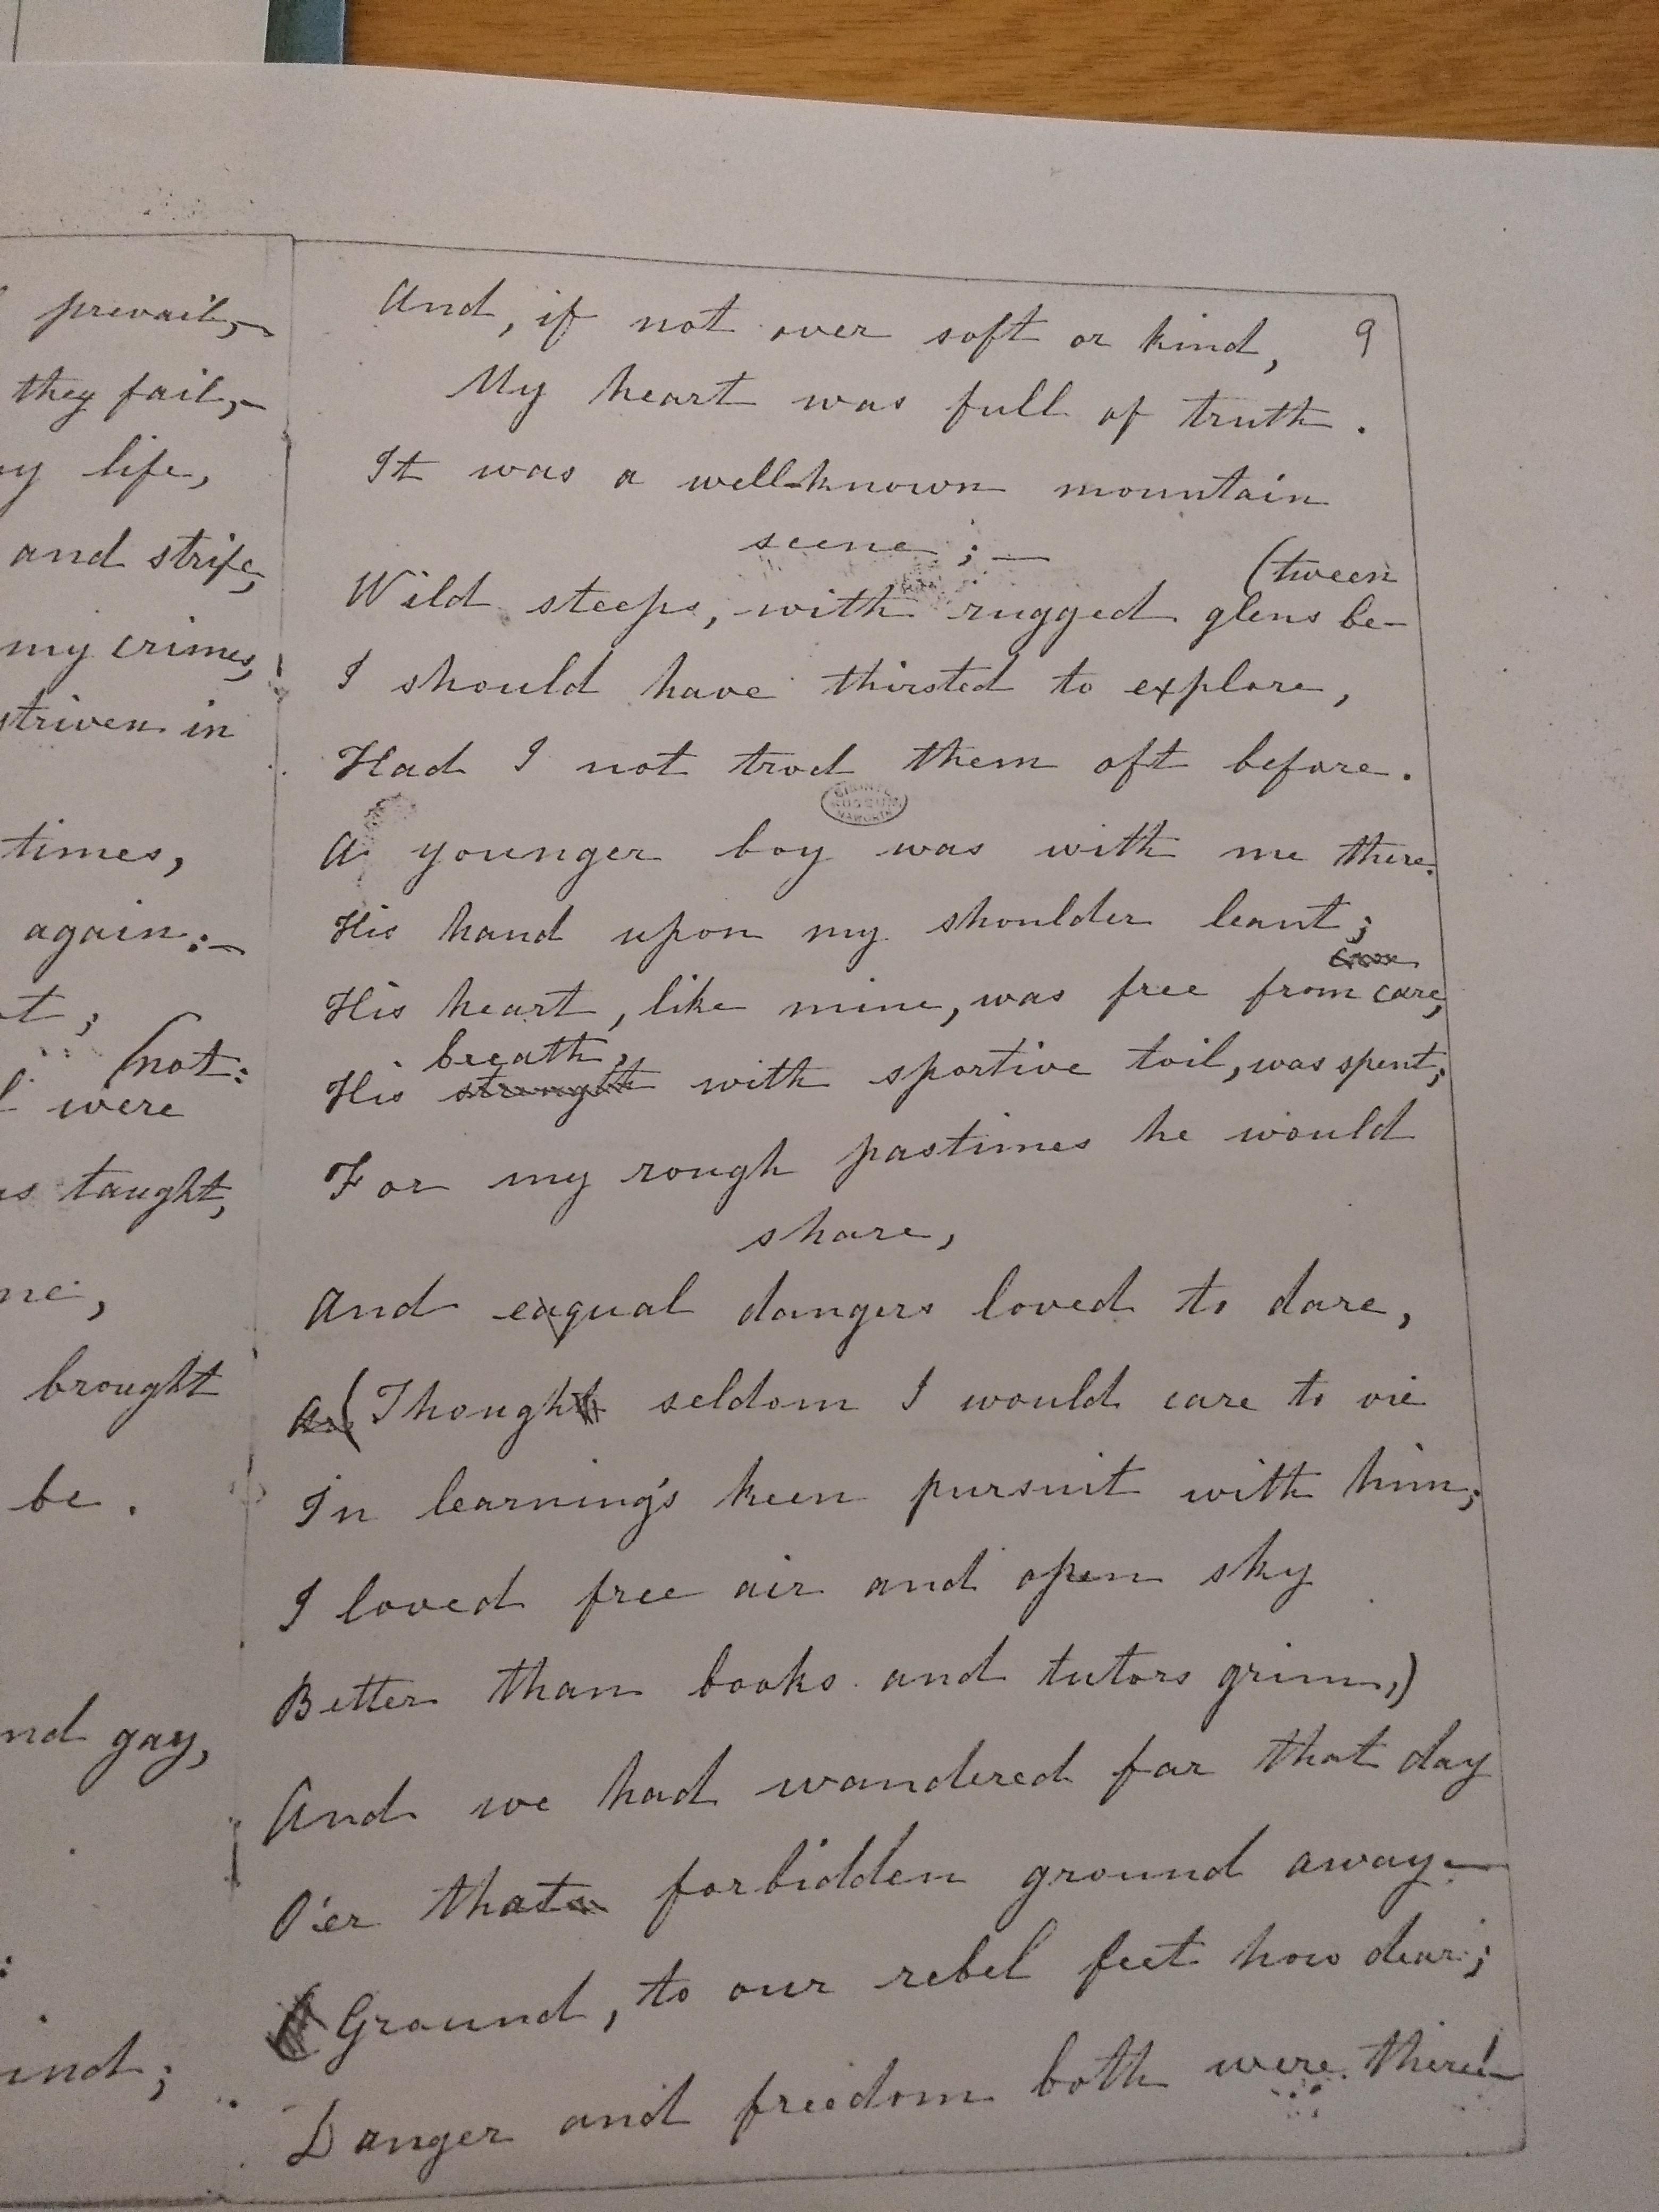 prevail,—
they fail,—
my life,
and strife,
my crimes,
striven in
times,
again:—
(not:
were
taught,
brought
be.
and gay,
And, if not over soft or kind, 9
My heart was full of truth.
It was a well-known mountain
scene;—
(tween
Wild steeps, with rugged glens be-
I should have thirsted to explore,
Had I not trod them oft before.
A younger boy was with me there.
His hand upon my shoulder leant;
His heart, like mine, was free from care,
breath,
His strength with sportive toil, was spent;
For my rough pastimes he would
share,
And eaqual dangers loved to dare,
(Though seldom I would care to vie
In learning's keen pursuit with him;
I loved free air and open sky
Better than books and tutors grim,)
And we had wandered far that day
O'er that forbidden ground away—
Ground, to our rebel feet how dear;
Danger and freedom both were there!—
BRONTË
MUSEUM
HAWORTH